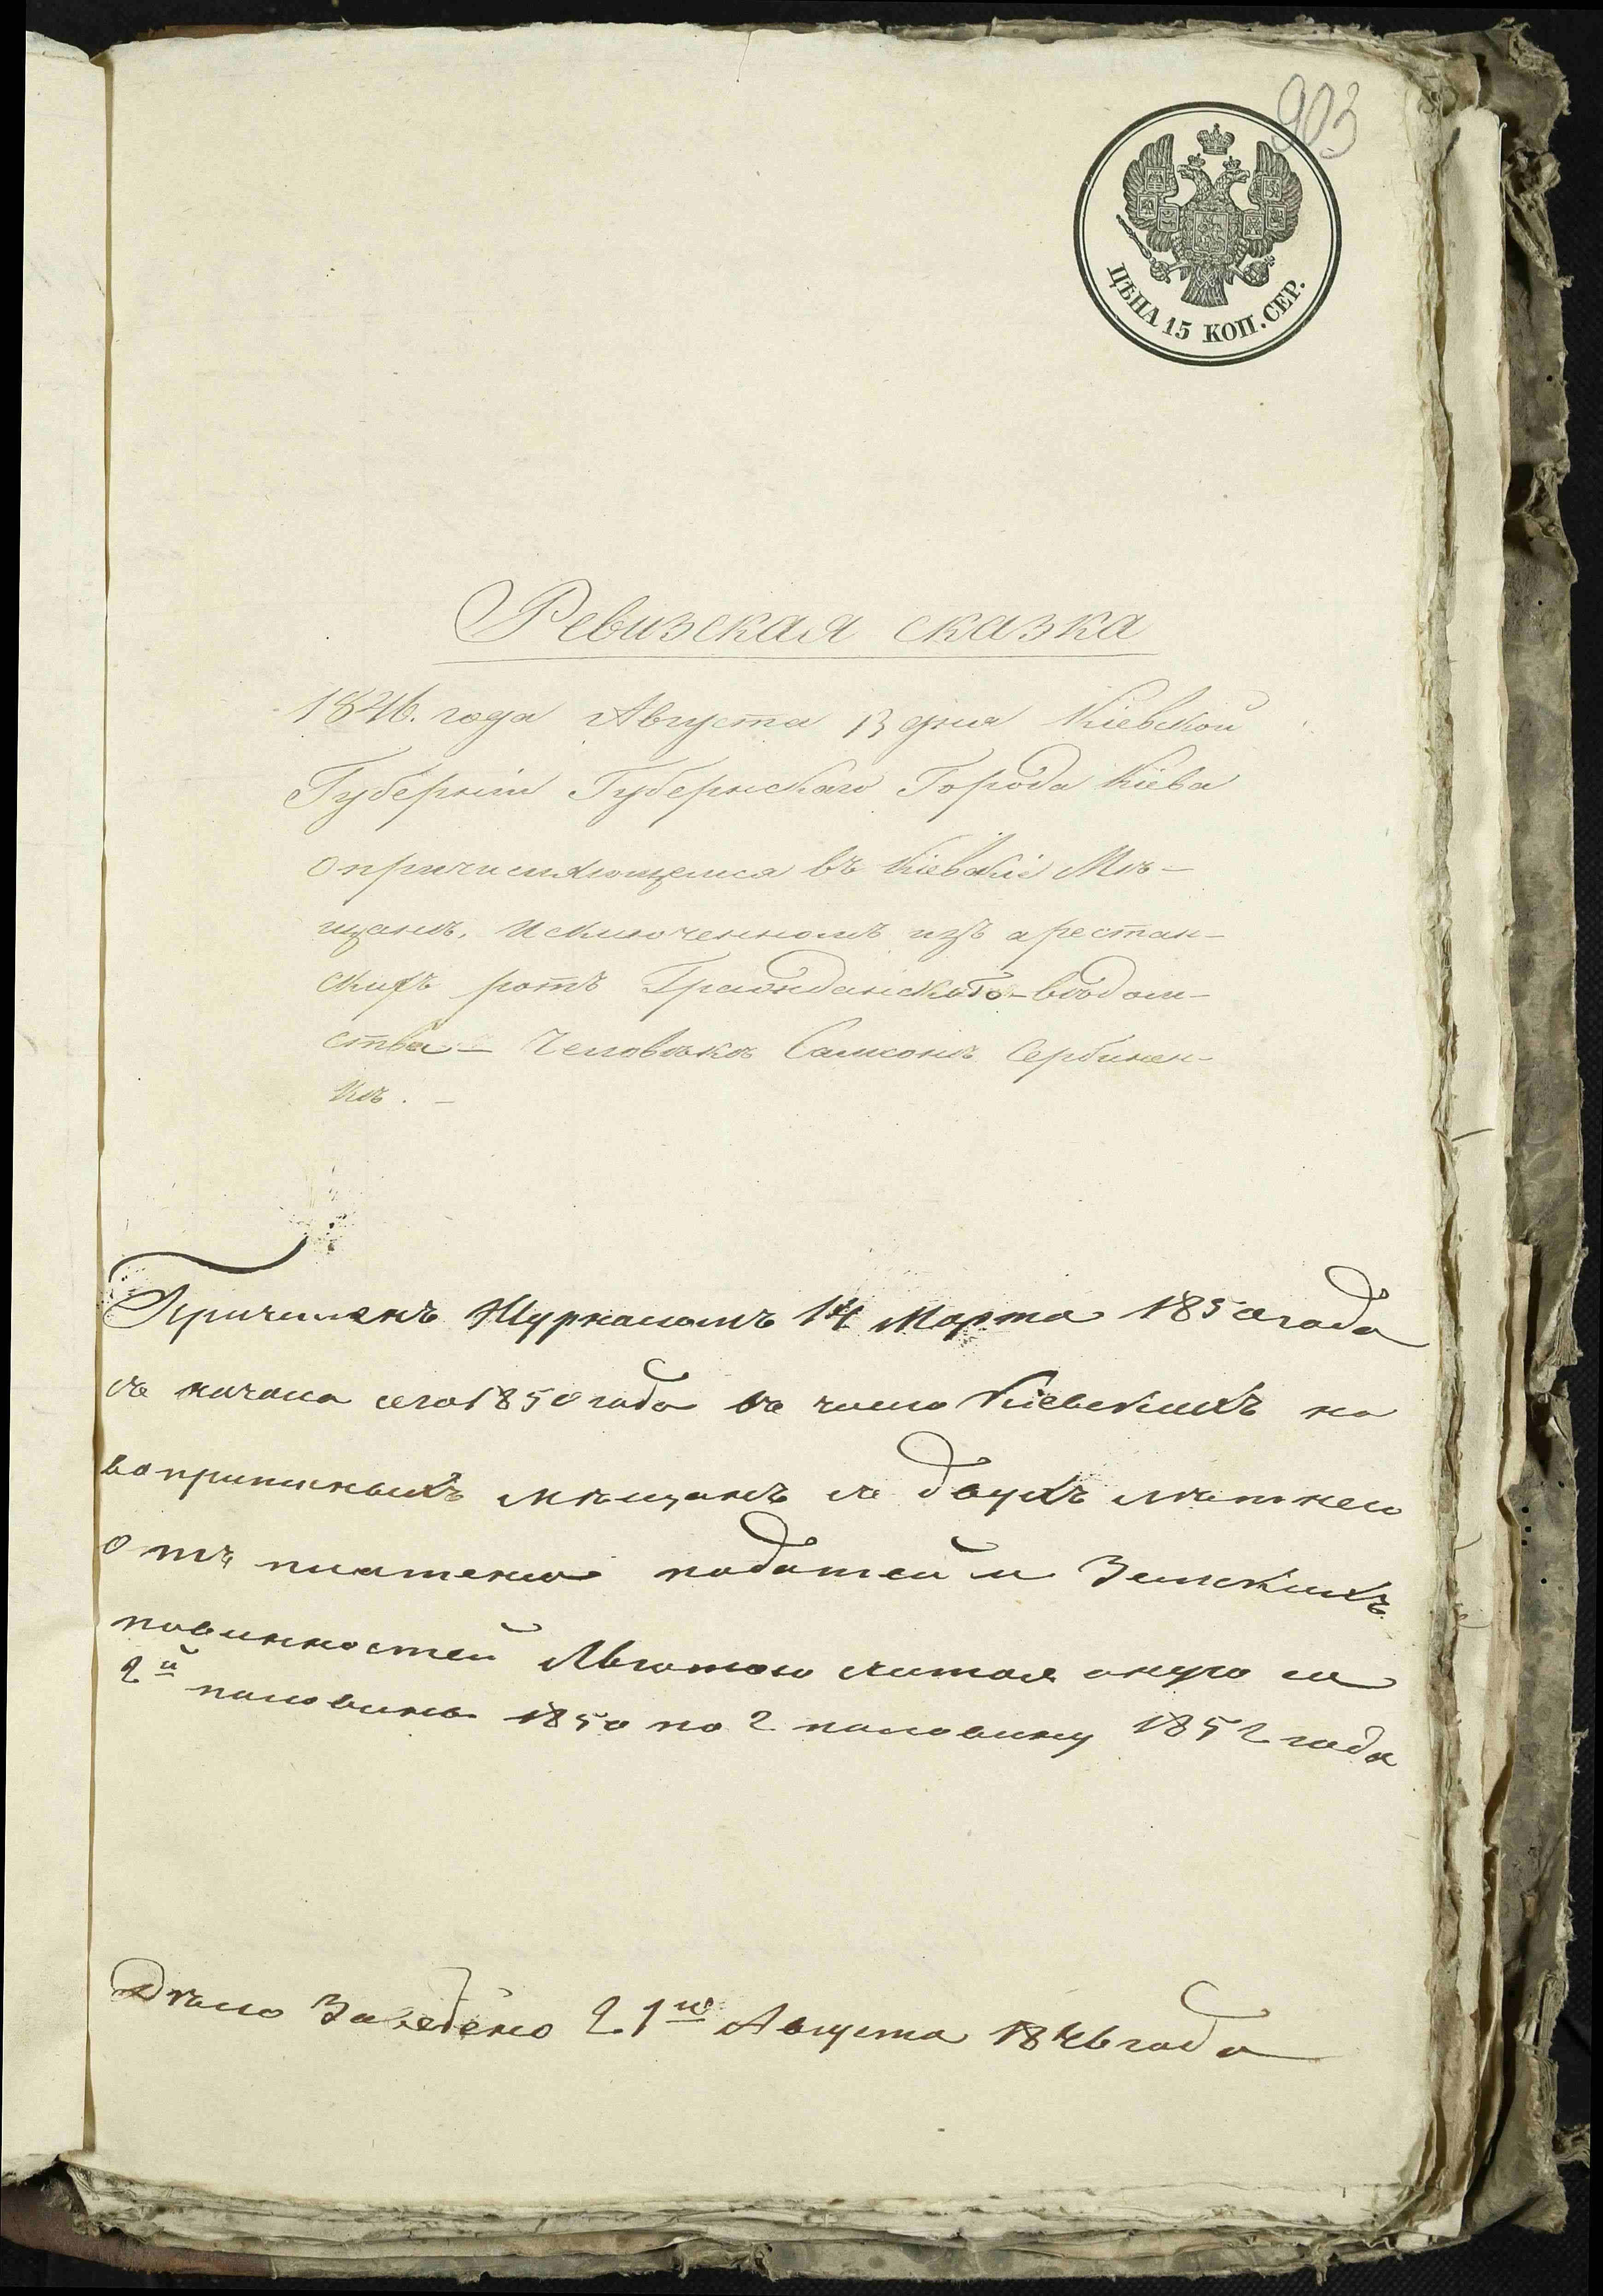 903
ЦѢНА 15 КОП. СЕР.
Ревизская сказка
1846. года Августа 13 дня Кіевской
Губерніи Губернскаго Города Кіева
о причисляющемся въ Кіевскіе Мѣ-
щане, исключенномъ изъ арестан-
скихъ ротъ Гражданскаго вѣдом-
ства — Человѣкѣ Самсонѣ Сербинен-
кѣ. —
Причисленъ Журналомъ 14 Марта 1850 года
съ начала сего 1850 года въ число Кіевскихъ но
воприписныхъ мѣщанъ съ двухъ лѣтнею
отъ платежа податей и Земскихъ
повинностей Льготою считая оную со
2й половины 1850 по 2 половину 1852 года
Дѣло Заведено 21го Августа 1846 года